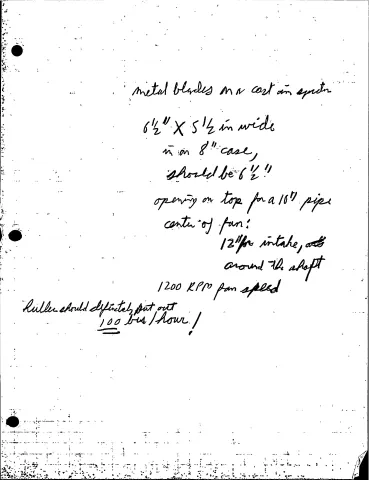 metal blades on a cast iron
6½" X 5½ in wide
in an 8" case,
should be 6½"
opening on top for a 10" pipe
center of fan:
12" for intake,
around the shaft
1200 RPM fan speed
Huller should definitely put out
100 bu/hour!